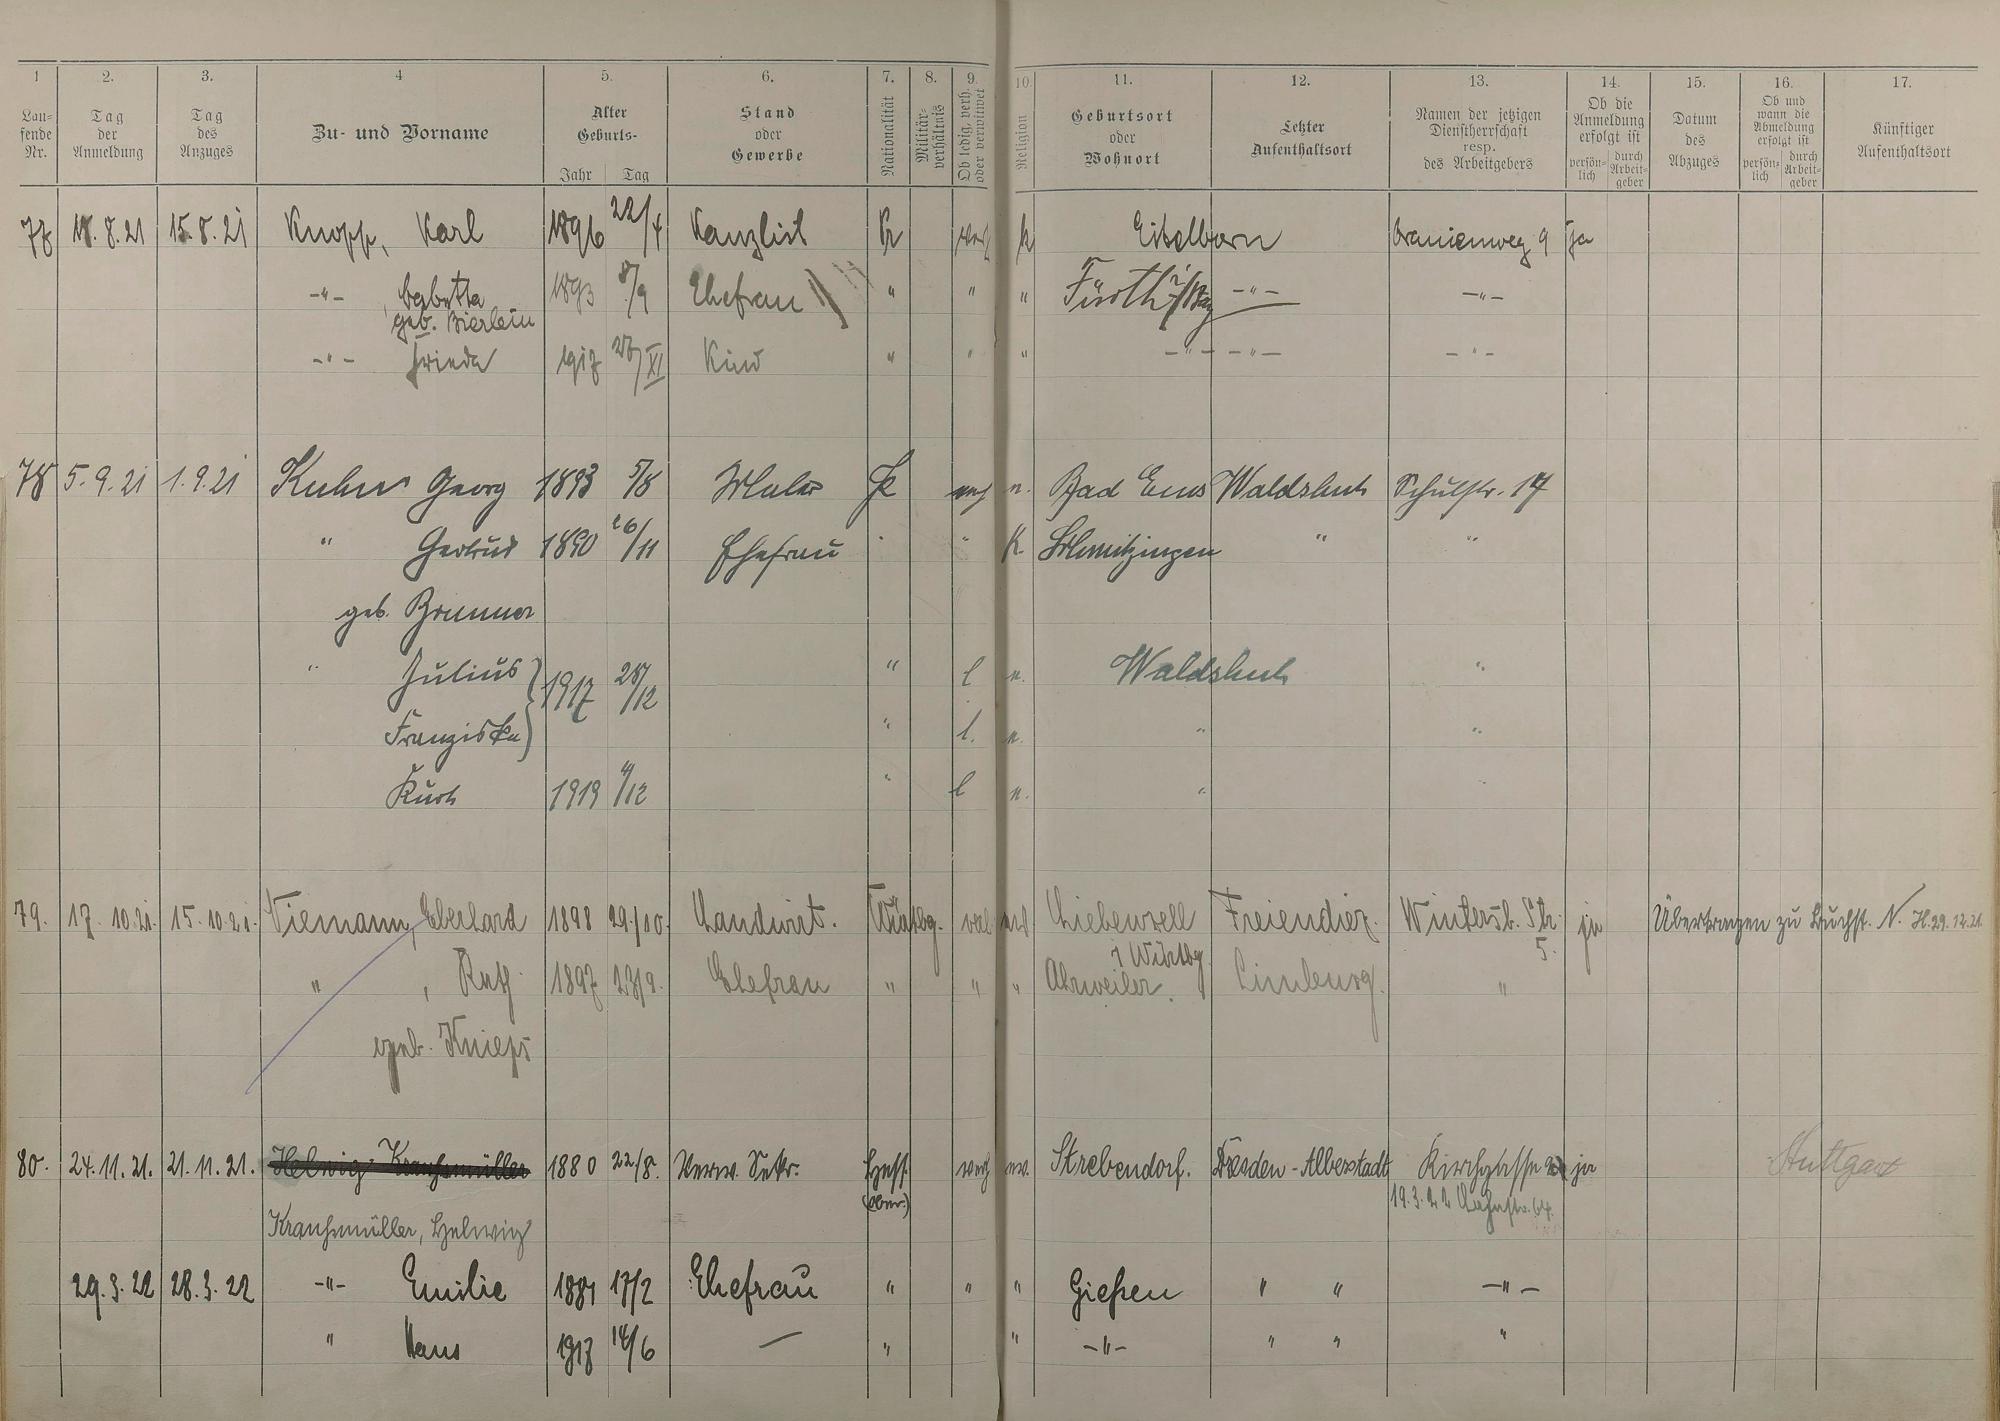 1 2. 3. 4 5. 6. 7. 8. 9. 10. 11. 12. 13. 14. 15. 16. 17.
Lau-
fende
Nr.
Tag
der
Anmeldung
Tag
des
Anzuges
Zu- und Vorname
Alter
Geburts-
Jahr Tag
Stand
oder
Gewerbe
Nationalität
Militär-
verhältnis
Ob ledig, verh.
oder verwitwet
Religion
Geburtsort
oder
Wohnort
Letzter
Aufenthaltsort
Namen der jetzigen
Dienstherrschaft
resp.
des Arbeitgebers
Ob die
Anmeldung
erfolgt ist
persön-
lich
durch
Arbeit-
geber
Datum
des
Abzuges
Ob und
wann die
Abmeldung
erfolgt ist
persön-
lich
durch
Arbeit-
geber
Künftiger
Aufenthaltsort
77 18.8.21 15.8.21 Knopp, Karl 1896 22/4 Kanzlist Pr verh k Eitelborn Oranienweg 9 ja
-"- , Babetta 1893 /9 Ehefrau " " " Fürth i/Bay -"- -"-
geb. Bierlein
-"- Frieda 1917 /XI Kind " " " -"- -"- -"-
78 5.9.21 1.9.21 Kuhn Georg 1893 5/8 Maler Pr verh e. Bad Ems Waldshut Schulstr. 17
" Gertrud 1890 26/11 Ehefrau " " K. Schmitzingen " "
geb. Brunner
" Julius 1917 28/12 " l e. Waldshut "
Franziska " l. e. " "
Kurt 1919 4/12 " l e. " "
79. 17.10.21. 15.10.21. Niemann, Eberhard 1898 29./10. Landwirt. Württbg. ja Liebenzell Freiendiez. Wintersb. Str. ja Übertragen zu Buchst. N. H. 29.12.21.
i Württbg. 5.
" , Ruth 1897 23/9. Ehefrau " " " Ahrweiler. Limburg. "
geb. Knieps
80. 24.11.21. 21.11.21. Helwig Krauhsmüller 1880 22./8. Verw. Sekr. Hess. verh ev. Strebendorf. Dresden-Alberstadt Kirchgasse ja Stuttgart
(Ober.) 19.3.22 Bahnstr. 64.
Krauhsmüller, Helwig
29.3.22 28.3.22 -"- Emilie 1881 17/2 Ehefrau " " " Gießen " " -"-
" Hans 1917 14/6 — " " -"- " " "